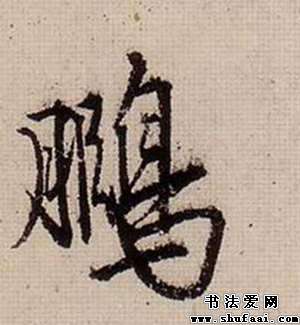 鵬
书法爱网
www.shufaai.com